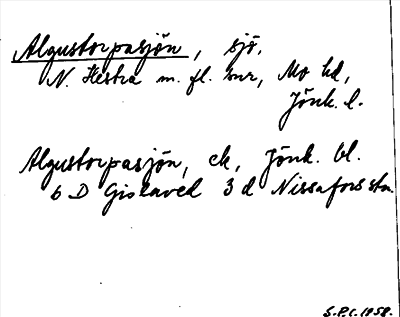 Algustorpasjön, sjö,
N. Hestra m. fl. snr, Mo hd,
Jönk. l.
Algustorpasjön, ek, Jönk. bl.
6 D Gislaved 3 d Nissafors stn
S.P.C. 1958.